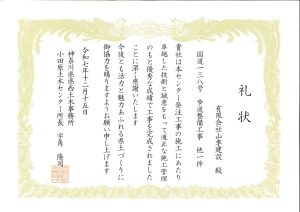 礼状
有限会社山幸建設 殿
国道一三八号 歩道整備工事 他一件
貴社は本センター発注工事の施工にあたり
卓越した技術と誠意をもって適正な施工管理
のもと優秀な成績で工事を完成されました
ことに深く感謝いたします
今後とも活力と魅力あふれる県土づくりに
御協力を賜りますようお願い申し上げます
令和七年十二月十五日
神奈川県県西土木事務所
小田原土木センター所長 宇角 隆司